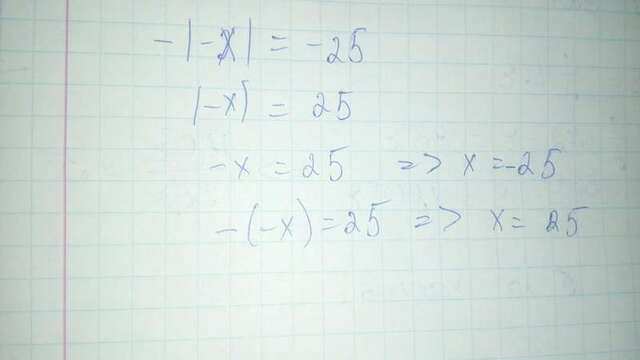 -|-x| = -25
|-x| = 25
-x = 25 => x = -25
-(-x) = 25 => x = 25